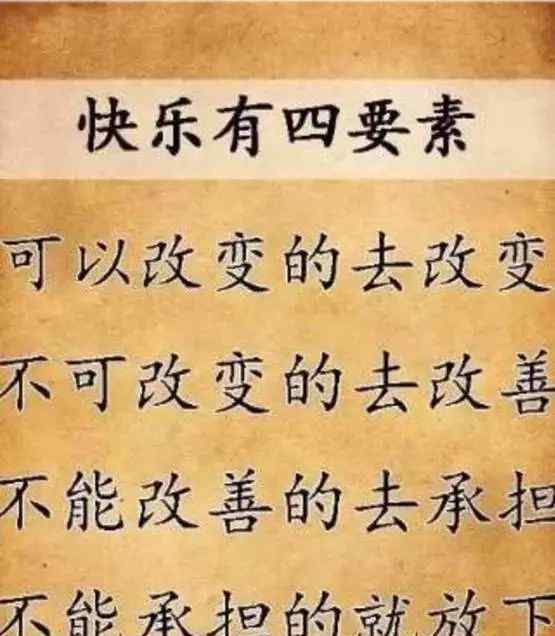 快乐有四要素
可以改变的去改变
不可改变的去改善
不能改善的去承担
不能承担的就放下